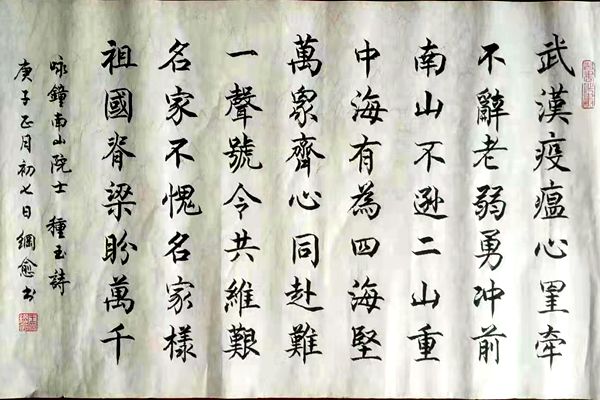 武漢疫瘟心里牽
不辭老弱勇冲前
南山不遜二山重
中海有為四海堅
萬衆齊心同赴難
一聲號令共維艱
名家不愧名家樣
祖國脊梁盼萬千
咏鐘南山院士 種玉詩
庚子正月初七日綱愈书